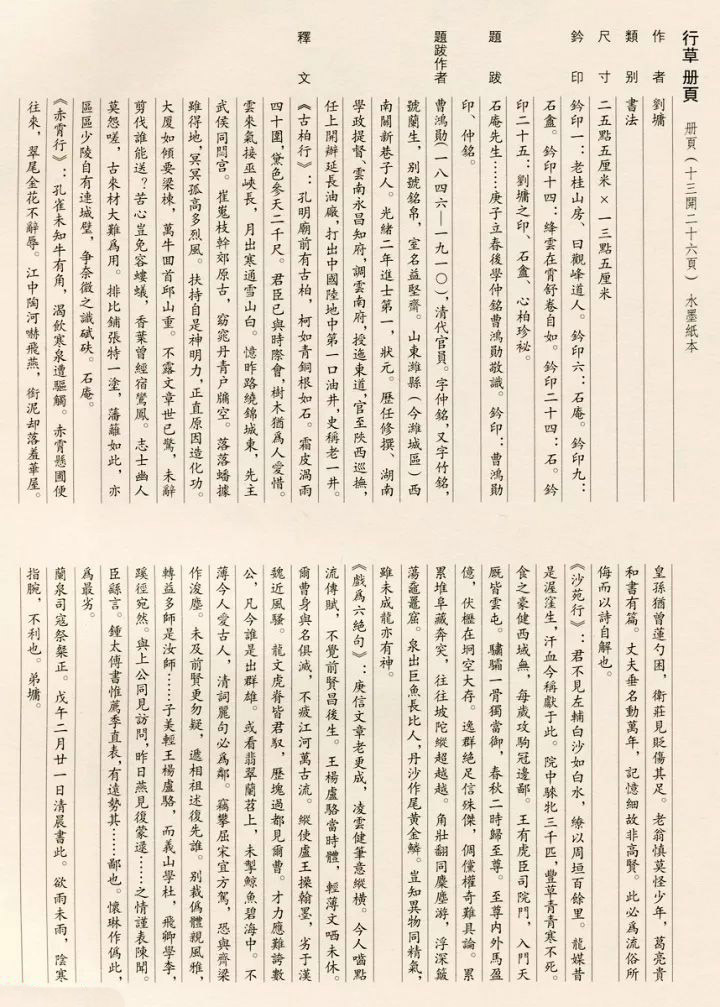 行草 册頁 册頁（十三開二十六頁）水墨紙本
作者 劉墉
類别 書法
尺寸 二五點五厘米×一三點五厘米
鈐印 鈐印一：老桂山房、日觀峰道人。鈐印六：石庵。鈐印九：
石盦。鈐印十四：絳雲在霄舒卷自如。鈐印二十四：石。鈐
印二十五：劉墉之印、石盦、心柏珍祕。
題跋 石庵先生……庚子立春後學仲銘曹鴻勛敬識。鈐印：曹鴻勛
印、仲銘。
題跋作者 曹鴻勛（一八四六—一九一〇），清代官員。字仲銘，又字竹銘，
號蘭生，别號銘帛，室名益堅齋。山東濰縣（今濰城區）西
南關新巷子人。光緒二年進士第一，狀元。歷任修撰、湖南
學政提督、雲南永昌知府，調雲南府，授迤東道，官至陝西巡撫，
任上開辦延長油廠，打出中國陸地中第一口油井，史稱老一井。
釋文 《古柏行》：孔明廟前有古柏，柯如青銅根如石。霜皮溜雨
四十圍，黛色參天二千尺。君臣已與時際會，樹木猶爲人愛惜。
雲來氣接巫峽長，月出寒通雪山白。憶昨路繞錦城東，先主
武侯同閟宫。崔嵬枝幹郊原古，窈窕丹青户牖空。落落蟠據
雖得地，冥冥孤高多烈風。扶持自是神明力，正直原因造化功。
大厦如傾要梁棟，萬牛回首邱山重。不露文章世已驚，未辭
剪伐誰能送？苦心豈免容螻蟻，香葉曾經宿鸞鳳。志士幽人
莫怨嗟，古來材大難爲用。排比鋪張特一塗，藩籬如此，亦
區區少陵自有連城璧，争奈微之識碔砆。石庵。
《赤霄行》：孔雀未知牛有角，渴飲寒泉遭觝觸。赤霄懸圃便
往來，翠尾金花不辭辱。江中陶河嚇飛燕，銜泥却落羞華屋。
皇孫猶曾蓮勺困，衛莊見貶傷其足。老翁慎莫怪少年，葛亮貴
和書有篇。丈夫垂名動萬年，記憶細故非高賢。此必爲流俗所
侮而以詩自解也。
《沙苑行》：君不見左輔白沙如白水，繚以周垣百餘里。龍媒昔
是渥窪生，汗血今稱獻于此。苑中騋牝三千匹，豐草青青寒不死。
食之豪健西域無，每歲攻駒冠邊鄙。王有虎臣司苑門，入門天
厩皆雲屯。驌驦一骨獨當御，春秋二時歸至尊。至尊内外馬盈
億，伏櫪在坰空大存。逸群絶足信殊傑，倜儻權奇難具論。累
累堆阜藏奔突，往往坡陀縱超越越。角壯翻同麋麈游，浮深簸
蕩黿鼉窟。泉出巨魚長比人，丹沙作尾黄金鱗。豈知異物同精氣，
雖未成龍亦有神。
《戲爲六絶句》：庾信文章老更成，凌雲健筆意縱横。今人嗤點
流傳賦，不覺前賢昌後生。王楊盧駱當時體，輕薄文哂未休。
爾曹身與名俱滅，不疲江河萬古流。縱使盧王操翰墨，劣于漢
魏近風騷。龍文虎脊皆君馭，歷塊過都見爾曹。才力應難誇數
公，凡今誰是出群雄。或看翡翠蘭苕上，未掣鯨魚碧海中。不
薄今人愛古人，清詞麗句必爲鄰。竊攀屈宋宜方駕，恐與齊梁
作浚塵。未及前賢更勿疑，遞相祖述復先誰。别裁僞體親風雅，
轉益多師是汝師……子美輕王楊盧駱，而義山學杜，飛卿學李，
蹊徑宛然。與上公同見訪問，昨日燕見復蒙逮……之情謹表陳聞。
臣繇言。鍾太傅書惟薦季直表，有遠勢其……鄙也。懷琳作僞此，
爲最劣。
蘭泉司寇祭桀正。戊午二月廿一日清晨書此。欲雨未雨，陰寒
指腕，不利也。弟墉。